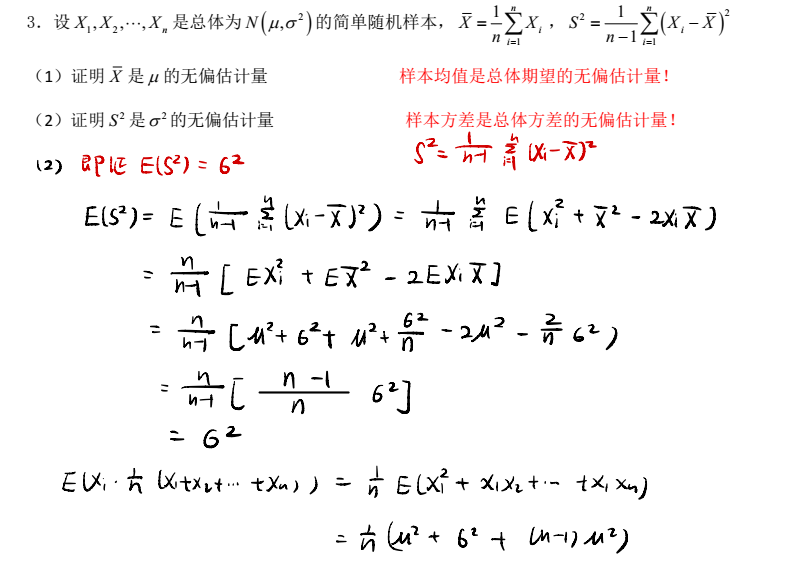 3．设 X₁,X₂,⋯,Xₙ 是总体为 N(μ,σ²) 的简单随机样本，X̄ = 1/n ∑ᵢ₌₁ⁿ Xᵢ ，S² = 1/(n−1) ∑ᵢ₌₁ⁿ (Xᵢ − X̄)²
（1）证明 X̄ 是 μ 的无偏估计量 样本均值是总体期望的无偏估计量！
（2）证明 S² 是 σ² 的无偏估计量 样本方差是总体方差的无偏估计量！
(2) 即证 E(S²) = σ² S² = 1/(n-1) ∑ᵢ₌₁ⁿ (Xᵢ - X̄)²
E(S²) = E( 1/(n-1) ∑ᵢ₌₁ⁿ (Xᵢ - X̄)² ) = 1/(n-1) ∑ᵢ₌₁ⁿ E( Xᵢ² + X̄² - 2XᵢX̄ )
= n/(n-1) [ EXᵢ² + EX̄² - 2EXᵢX̄ ]
= n/(n-1) [ μ² + σ² + μ² + σ²/n - 2μ² - 2/n σ² )
= n/(n-1) [ (n-1)/n σ² ]
= σ²
E(Xᵢ · 1/n (X₁+X₂+⋯+Xₙ)) = 1/n E(Xᵢ² + X₁X₂ + ⋯ + X₁Xₙ)
= 1/n (μ² + σ² + (n-1) μ²)